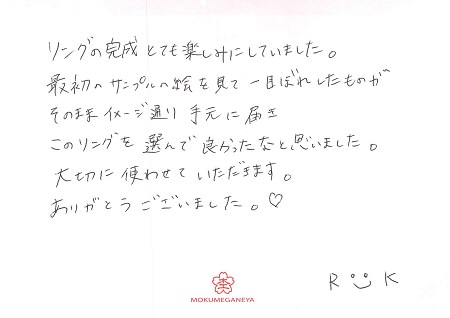 リングの完成とても楽しみにしていました。
最初のサンプルの絵を見て一目ぼれしたものが
そのままイメージ通り手元に届き
このリングを選んで良かったなと思いました。
大切に使わせていただきます。
ありがとうございました。♡
R ü K
MOKUMEGANEYA